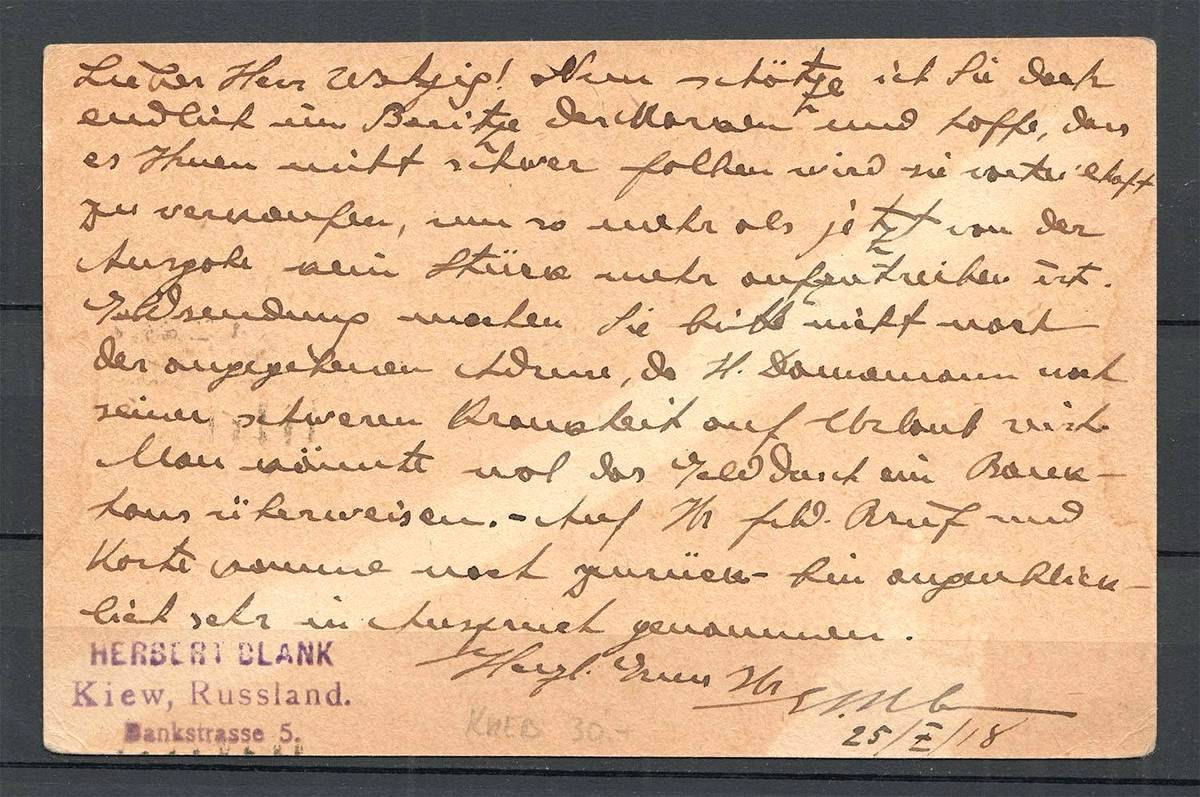 Lieber Herr ! Nun schätze ich Sie doch
endlich im Besitze der Marken und hoffe, dass
es Ihnen nicht schwer fallen wird sie vorteilhaft
zu verkaufen, um so mehr als jetzt von der
Ausgabe kein Stück mehr aufzutreiben ist.
Geldsendung machen Sie bitte nicht nach
der angegebenen Adresse, da H. noch
seiner schweren Krankheit auf Urlaub
Man könnte wol das Geld durch ein Bank-
haus überweisen. - Auf Ihr frdl. Brief und
Karte komme noch zurück - bin augenblick-
lich sehr in Anspruch genommen.
Herzl. Gruss Ihr
25/I/18
HERBERT BLANK
Kiew, Russland.
Bankstrasse 5.
КИЕВ 30.-